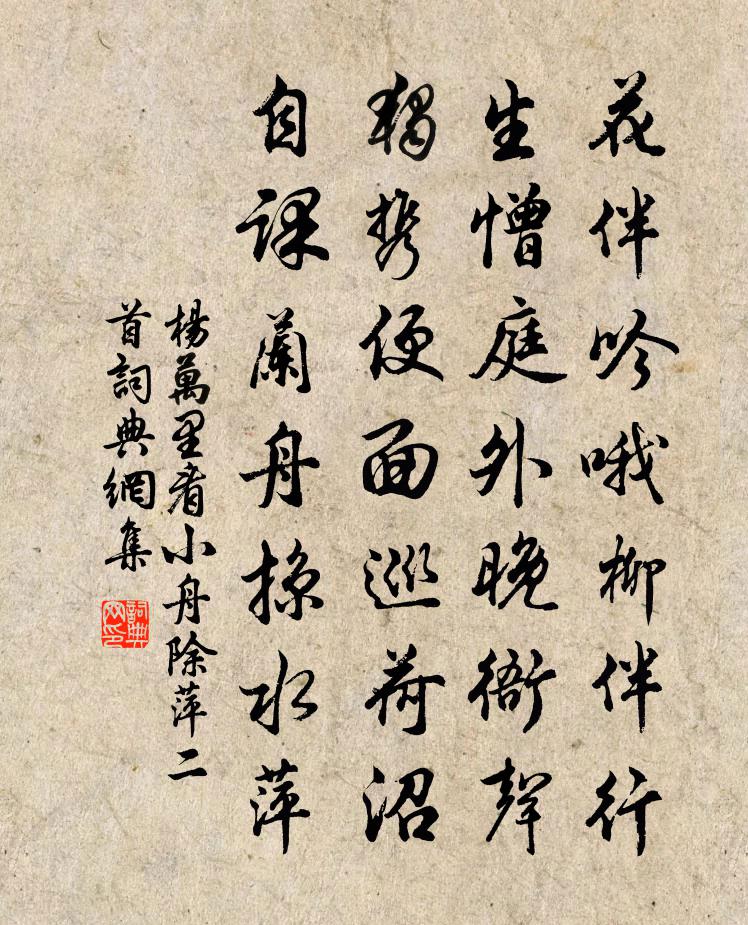 花伴吟哦柳伴行
生憎庭外晚衙聲
独携便面巡荷沼
自課蘭舟掠水萍
楊萬里看小舟除萍二
首詞典網集
詞典
网印